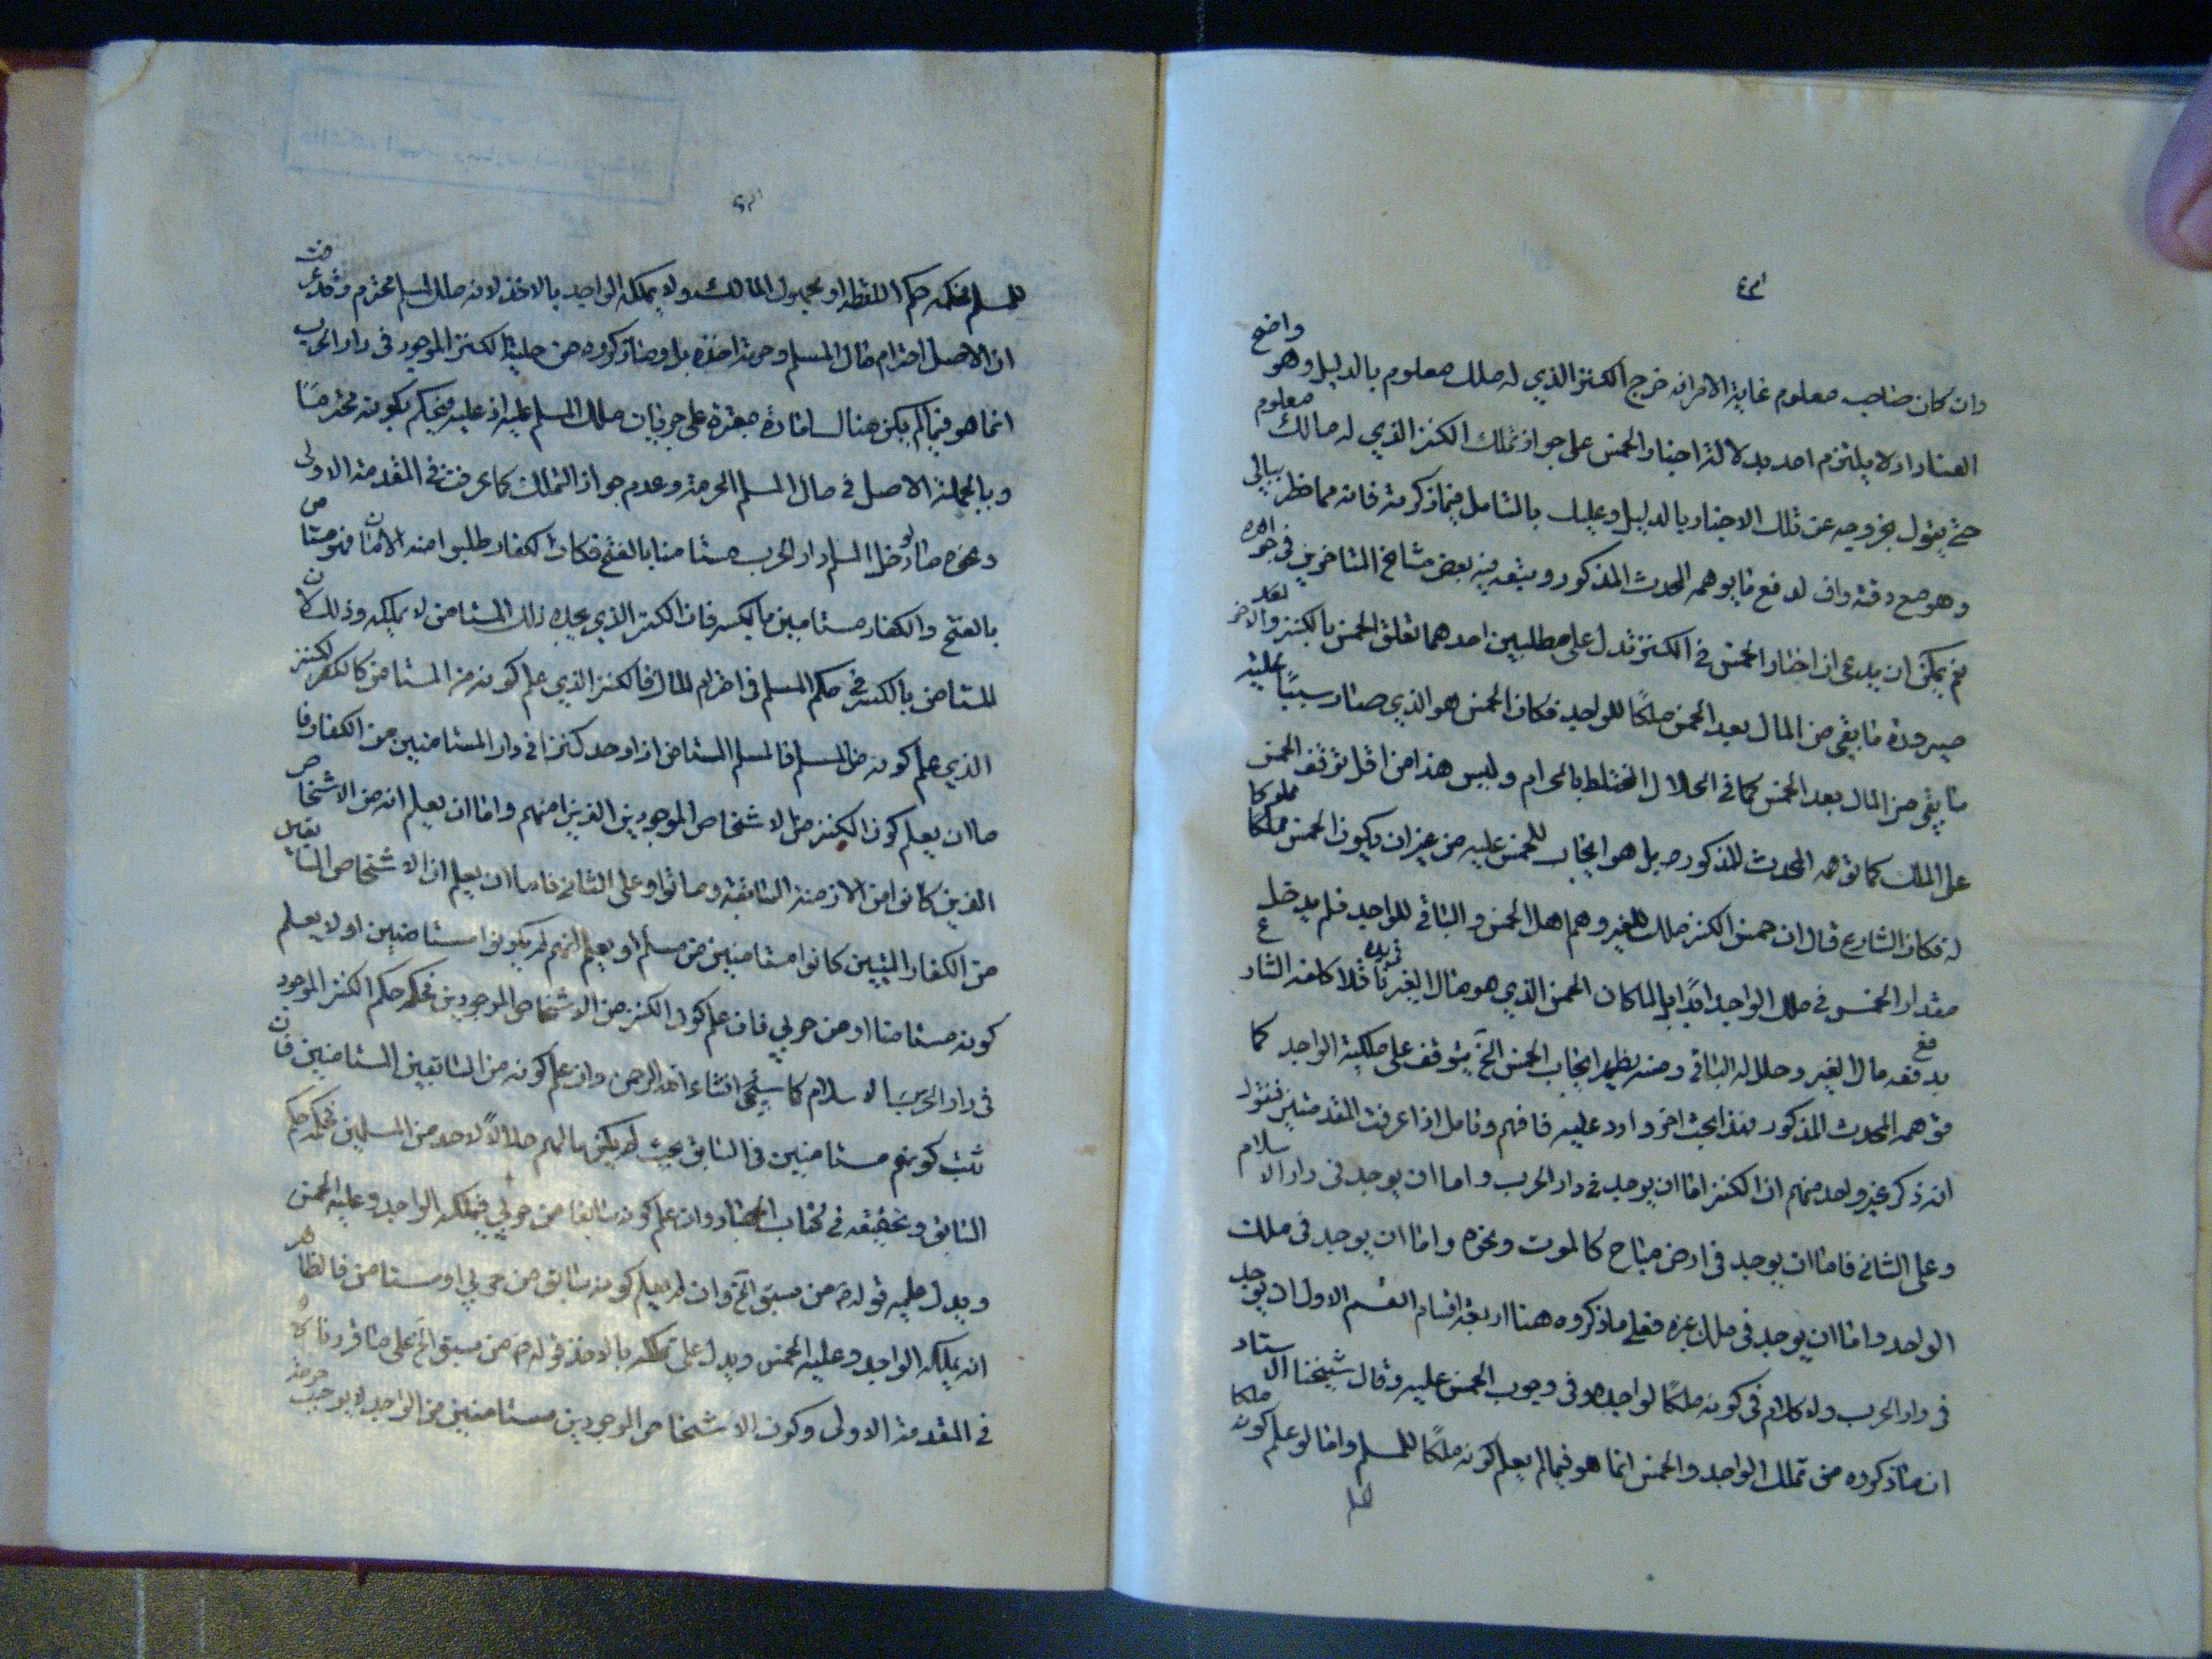 وان كان صاحبه معلوم غاية الامر انه خرج الكنز الذي له ملك معلوم بالدليل وهو واضح
الفساد اذ لا يلتزم احد بدلالة اخبار الخمس على جواز تملك الكنز الذي له مالك معلوم
حتى يقول بخروجه عن تلك الاخبار بالدليل وعليك بالتامل فيما ذكرته فانه مما خطر ببالي
وهو مع دقته واف لدفع ما يوهمه المحدث المذكور وتبعه فيه بعض مشايخ المتاخرين في
نعم يمكن ان يدعى ان اخبار الخمس في الكنز تدل على مطلبين احدهما تعلق الخمس بالكنز والاخر
صيرورة ما بقي من المال بعد الخمس ملكا للواجد فكان الخمس هو الذي صار سببا
ما بقي من المال بعد الخمس كما في الحلال المختلط بالحرام وليس هذا من اجل توقف الخمس
على الملك كما توهمه المحدث المذكور بل هو ايجاب للخمس عليه من غير ان يكون الخمس مملوكا
له فكان الشارع قال ان خمس الكنز ملك للغير وهم اهل الخمس والباقي للواجد فلم يدخل
مقدار الخمس في ملك الواجد ابدا بل لما كان الخمس الذي هو مال الغير
بدفعه مال الغير وحلل له الباقي ومنه يظهر ايجاب الخمس الخ يتوقف على ملكية الواجد كما
توهمه المحدث المذكور فهذا بحث اخر وارد عليه فافهم وتامل اذا عرفت المقدمتين فنقول
انه ذكر غير واحد منهم ان الكنز اما ان يوجد في دار الحرب واما ان يوجد في دار الاسلام
وعلى الثاني فاما ان يوجد في ارض مباح كالموت ونحوه واما ان يوجد في ملك
الواجد واما ان يوجد في ملك غيره فعلى ما ذكروه هنا اربعة اقسام القسم الاول ان يوجد
في دار الحرب ولا كلام في كونه ملكا لواجده وفي وجوب الخمس عليه وقال شيخنا الاستاد
ان ما ذكروه من تملك الواجد والخمس انما هو فيما لم يعلم كونه ملكا للمسلم واما لو علم كونه ملكا
للمسلم فحكمه حكم اللقطه او مجهول المالك ولا يملكه الواجد بالاخذ لانه ملك المسلم محترم وقد عرفت
ان الاصل احترام مال المسلم وحرمة اخذه بل وما ذكروه من حلية الكنز الموجود في دار الحرب
انما هو فيما لم يكن هنالك امارة معتبرة على جريان ملك المسلم عليه اذ عليه فيحكم بكونه محترما
وبالجملة الاصل في مال المسلم الحرمة وعدم جواز التملك كما عرفت في المقدمة الاولى
ونحوه ما لو دخل المسلم دار الحرب مستامنا بالفتح فكان الكفار طلبوا منه الامان فهو مستامن
بالفتح والكفار مستامنين بالكسر فان الكنز الذي يجده ذلك المستامن لا يملكه وذلك لان
المستامن بالكسر في حكم المسلم في احترام المال فالكنز الذي علم كونه من المستامن كالكنز
الذي علم كونه من المسلم فالمسلم المستامن اذا وجد كنزا في دار المستامنين من الكفار فا
ما ان يعلم كون الكنز من الاشخاص الموجودين الذين امنهم واما ان يعلم انه من الاشخاص
الذين كانوا من الازمنة السابقة وماتوا وعلى الثاني فاما ان يعلم ان الاشخاص السابقين
من الكفار الميتين كانوا مستامنين من مسلم او يعلم انهم لم يكونوا مستامنين او لا يعلم
كونه مستامنا او من حربي فان علم كون الكنز من الاشخاص الموجودين فحكمه حكم الكنز الموجود
في دار الاسلام كما سيجئ انشاء الله الرحمن وان علم كونه من السابقين المستامنين فان
ثبت كونهم مستامنين في السابق بحيث لم يكن مالهم حلالا لاحد من المسلمين فحكمه حكم
السابق وتحقيقه في كتاب الجهاد وان علم كونه سابقا من حربي فيملكه الواجد وعليه الخمس
ويدل عليه قوله من سبق الخ وان لم يعلم كونه سابق من حربي او مستامن فالظاهر
انه يملكه الواجد وعليه الخمس ويدل على تملكه بالاخذ قوله من سبق الخ على ما قررناه
في المقدمة الاولى وكون الاشخاص الموجودين مستامنين من الواجد لا يوجب حرمة